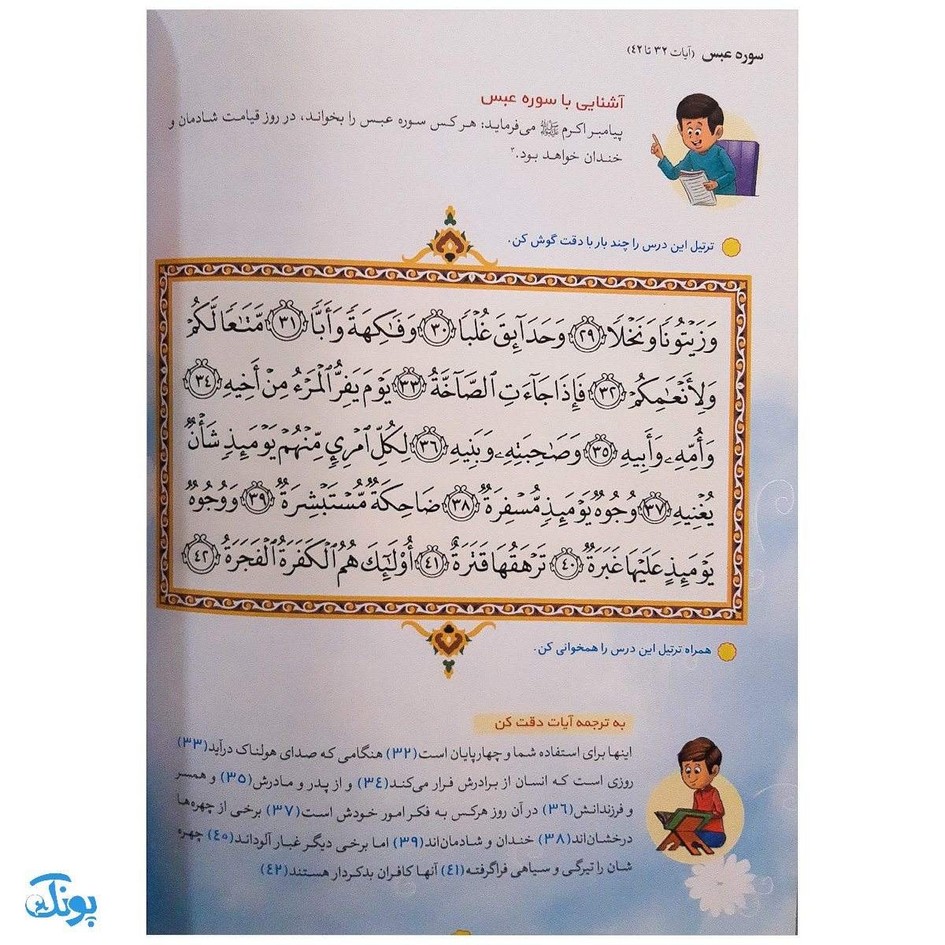 سوره عبس (آیات ۳۲ تا ۴۲)
آشنایی با سوره عبس
پیامبر اکرم ﷺ می‌فرماید: هر کس سوره عبس را بخواند، در روز قیامت شادمان و
خندان خواهد بود.۲
ترتیل این درس را چند بار با دقت گوش کن.
وَزَيْتُونًا وَنَخْلًا ٢٩ وَحَدَآئِقَ غُلْبًا ٣٠ وَفَٰكِهَةً وَأَبًّا ٣١ مَّتَٰعًا لَّكُمْ
وَلِأَنْعَٰمِكُمْ ٣٢ فَإِذَا جَآءَتِ ٱلصَّآخَّةُ ٣٣ يَوْمَ يَفِرُّ ٱلْمَرْءُ مِنْ أَخِيهِ ٣٤
وَأُمِّهِۦ وَأَبِيهِ ٣٥ وَصَٰحِبَتِهِۦ وَبَنِيهِ ٣٦ لِكُلِّ ٱمْرِئٍ مِّنْهُمْ يَوْمَئِذٍ شَأْنٌ
يُغْنِيهِ ٣٧ وُجُوهٌ يَوْمَئِذٍ مُّسْفِرَةٌ ٣٨ ضَاحِكَةٌ مُّسْتَبْشِرَةٌ ٣٩ وَوُجُوهٌ
يَوْمَئِذٍ عَلَيْهَا غَبَرَةٌ ٤٠ تَرْهَقُهَا قَتَرَةٌ ٤١ أُوْلَٰٓئِكَ هُمُ ٱلْكَفَرَةُ ٱلْفَجَرَةُ ٤٢
همراه ترتیل این درس را همخوانی کن.
به ترجمه آیات دقت کن
اینها برای استفاده شما و چهارپایان است(۳۲) هنگامی که صدای هولناک درآید(۳۳)
روزی است که انسان از برادرش فرار می‌کند(۳۴) و از پدر و مادرش(۳۵) و همسر
و فرزندانش(۳۶) در آن روز هرکس به فکر امور خودش است(۳۷) برخی از چهره‌ها
درخشان‌اند(۳۸) خندان و شادمان‌اند(۳۹) اما برخی دیگر غبار آلوداند(۴۰) چهره
شان را تیرگی و سیاهی فراگرفته(۴۱) آنها کافران بدکردار هستند(۴۲)
پونک